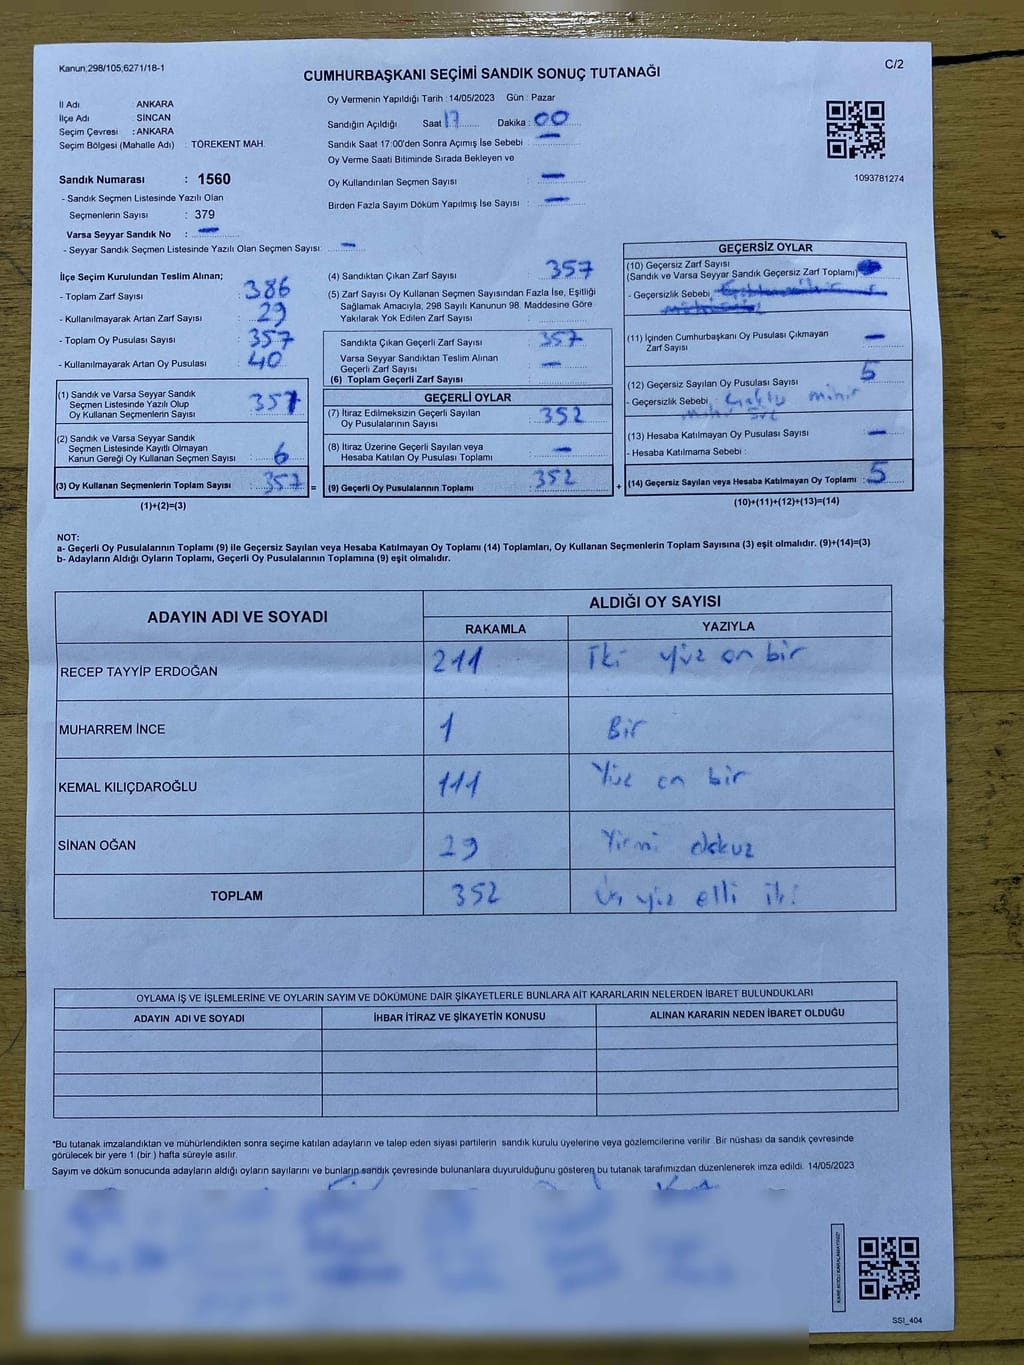 Kanun;298/105;6271/18-1
C/2
CUMHURBAŞKANI SEÇİMİ SANDIK SONUÇ TUTANAĞI
İl Adı ANKARA
İlçe Adı : SİNCAN
Seçim Çevresi : ANKARA
Seçim Bölgesi (Mahalle Adı) : TÖREKENT MAH.
Sandık Numarası : 1560
- Sandık Seçmen Listesinde Yazılı Olan
Seçmenlerin Sayısı : 379
Varsa Seyyar Sandık No : —
- Seyyar Sandık Seçmen Listesinde Yazılı Olan Seçmen Sayısı: —
Oy Vermenin Yapıldığı Tarih : 14/05/2023 Gün : Pazar
Sandığın Açıldığı Saat 17 Dakika : 00
Sandık Saat 17:00'den Sonra Açımış İse Sebebi : —
Oy Verme Saati Bitiminde Sırada Bekleyen ve
Oy Kullandırılan Seçmen Sayısı : —
Birden Fazla Sayım Döküm Yapılmış İse Sayısı : —
1093781274
İlçe Seçim Kurulundan Teslim Alınan;
- Toplam Zarf Sayısı : 386
- Kullanılmayarak Artan Zarf Sayısı : 29
- Toplam Oy Pusulası Sayısı : 357
- Kullanılmayarak Artan Oy Pusulası : 40
(1) Sandık ve Varsa Seyyar Sandık
Seçmen Listesinde Yazılı Olup
Oy Kullanan Seçmenlerin Sayısı : 357
(2) Sandık ve Varsa Seyyar Sandık
Seçmen Listesinde Kayıtlı Olmayan
Kanun Gereği Oy Kullanan Seçmen Sayısı : 6
(3) Oy Kullanan Seçmenlerin Toplam Sayısı : 357
(1)+(2)=(3)
(4) Sandıktan Çıkan Zarf Sayısı : 357
(5) Zarf Sayısı Oy Kullanan Seçmen Sayısından Fazla İse, Eşitliği
Sağlamak Amacıyla, 298 Sayılı Kanunun 98. Maddesine Göre
Yakılarak Yok Edilen Zarf Sayısı :
Sandıkta Çıkan Geçerli Zarf Sayısı : 357
Varsa Seyyar Sandıktan Teslim Alınan
Geçerli Zarf Sayısı : —
(6) Toplam Geçerli Zarf Sayısı :
GEÇERLİ OYLAR
(7) İtiraz Edilmeksizin Geçerli Sayılan
Oy Pusulalarının Sayısı : 352
(8) İtiraz Üzerine Geçerli Sayılan veya
Hesaba Katılan Oy Pusulası Toplamı : —
= (9) Geçerli Oy Pusulalarının Toplamı : 352
GEÇERSİZ OYLAR
(10) Geçersiz Zarf Sayısı
(Sandık ve Varsa Seyyar Sandık Geçersiz Zarf Toplamı)
- Geçersizlik Sebebi
(11) İçinden Cumhurbaşkanı Oy Pusulası Çıkmayan
Zarf Sayısı : —
(12) Geçersiz Sayılan Oy Pusulası Sayısı : 5
- Geçersizlik Sebebi :
(13) Hesaba Katılmayan Oy Pusulası Sayısı : —
- Hesaba Katılmama Sebebi :
+ (14) Geçersiz Sayılan veya Hesaba Katılmayan Oy Toplamı : 5
(10)+(11)+(12)+(13)=(14)
NOT:
a- Geçerli Oy Pusulalarının Toplamı (9) ile Geçersiz Sayılan veya Hesaba Katılmayan Oy Toplamı (14) Toplamları, Oy Kullanan Seçmenlerin Toplam Sayısına (3) eşit olmalıdır. (9)+(14)=(3)
b- Adayların Aldığı Oyların Toplamı, Geçerli Oy Pusulalarının Toplamına (9) eşit olmalıdır.
ADAYIN ADI VE SOYADI
ALDIĞI OY SAYISI
RAKAMLA YAZIYLA
RECEP TAYYİP ERDOĞAN 211 İki yüz on bir
MUHARREM İNCE 1 Bir
KEMAL KILIÇDAROĞLU 111 Yüz on bir
SİNAN OĞAN 29 Yirmi dokuz
TOPLAM 352 Üç yüz elli iki
OYLAMA İŞ VE İŞLEMLERİNE VE OYLARIN SAYIM VE DÖKÜMÜNE DAİR ŞİKAYETLERLE BUNLARA AİT KARARLARIN NELERDEN İBARET BULUNDUKLARI
ADAYIN ADI VE SOYADI İHBAR İTİRAZ VE ŞİKAYETİN KONUSU ALINAN KARARIN NEDEN İBARET OLDUĞU
*Bu tutanak imzalandıktan ve mühürlendikten sonra seçime katılan adayların ve talep eden siyasi partilerin sandık kurulu üyelerine veya gözlemcilerine verilir. Bir nüshası da sandık çevresinde
görülecek bir yere 1 (bir ) hafta süreyle asılır.
Sayım ve döküm sonucunda adayların aldığı oyların sayılarını ve bunların sandık çevresinde bulunanlara duyurulduğunu gösteren bu tutanak tarafımızdan düzenlenerek imza edildi. 14/05/2023
KARE KODU KARALAMAYINIZ!
SSI_404